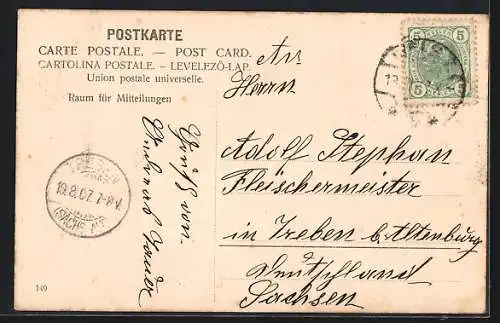 POSTKARTE
CARTE POSTALE. — POST CARD.
CARTOLINA POSTALE. – LEVELEZŐ-LAP.
Union postale universelle.
Raum für Mitteilungen
An
Herrn
Adolf Stephan
Fleischermeister
in Treben b. Altenburg
Deutschland
Sachsen
Gruß von
5 5
5 5
TREBEN
19.8.07. 7-8V.
(SACHS.ALT.)
149